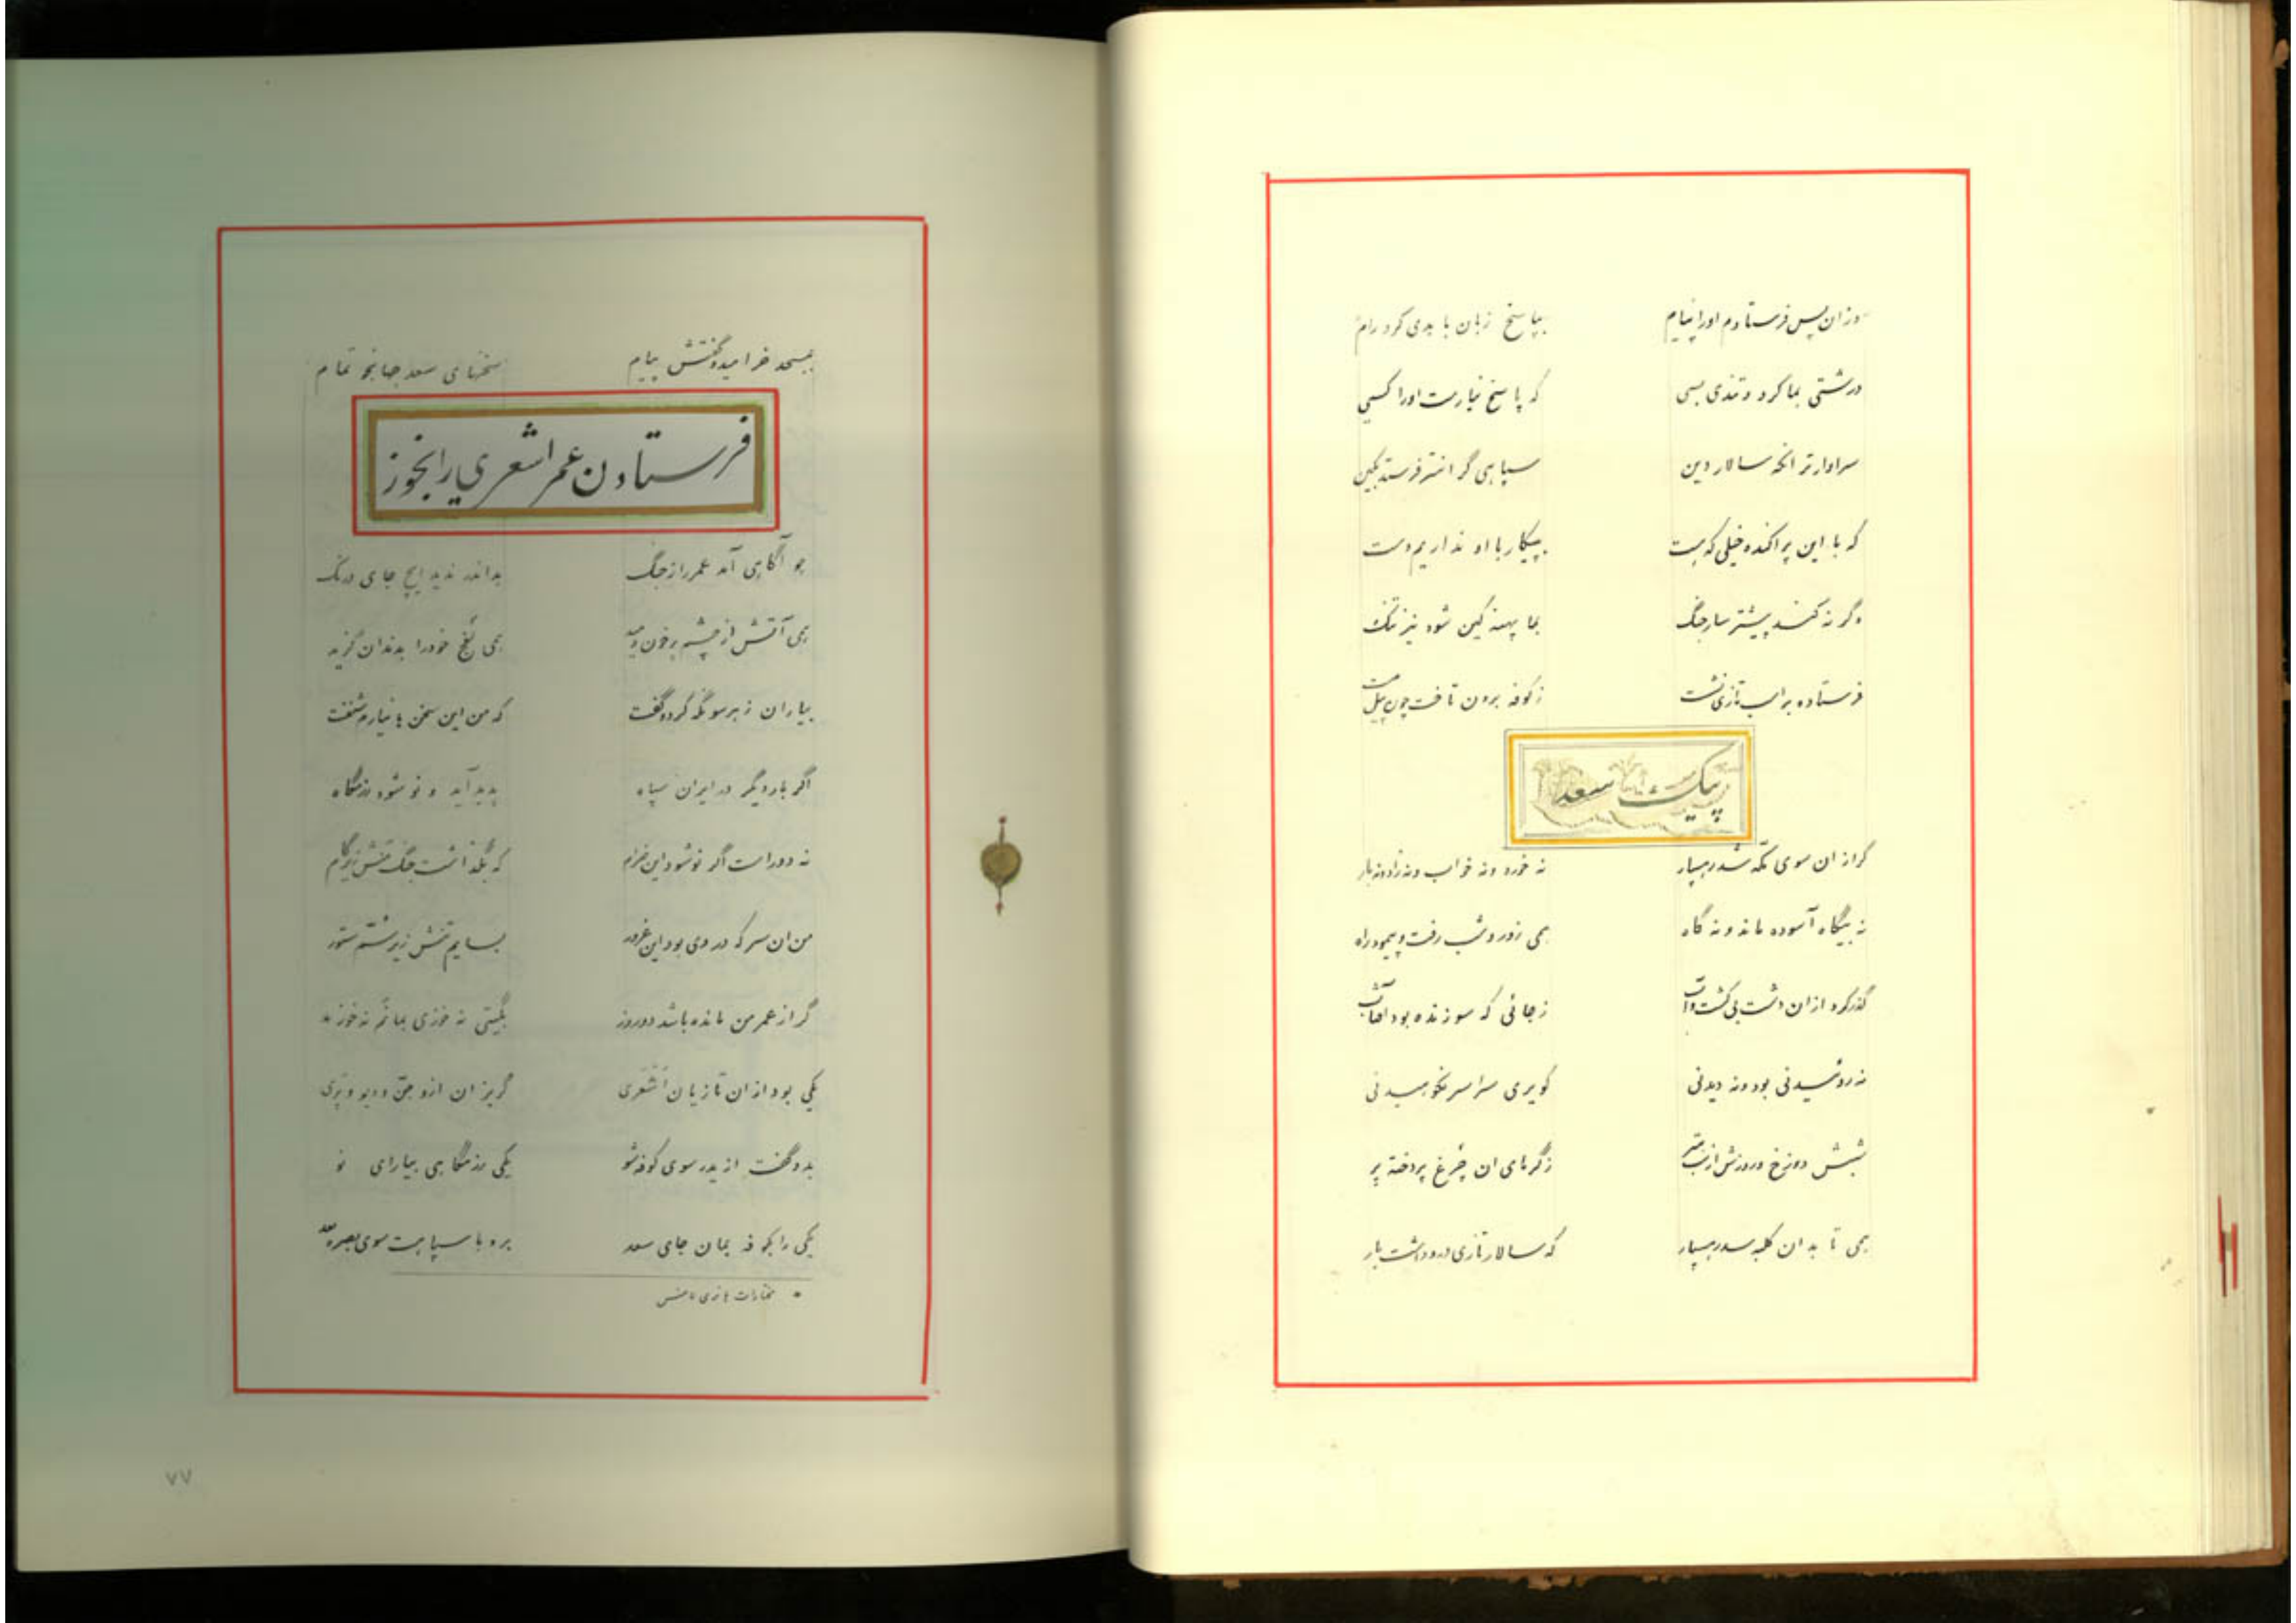 وزان پس فرستادم اورا پیام
بپاسخ زبان با بدی کرد رام
درشتی بما کرد و تندی بسی
که پاسخ نیارست اورا کسی
سزاوارتر انکه سالار دین
سپاهی گرانتر فرستد بکین
که با این پراکنده خیلی که هست
بپیکار با او نداریم دست
وگرنه کند پیشتر ساز جنگ
بما پهنه کین شود نیز تنگ
فرستاده بر اسب تازی نشست
ز کوفه برون تاخت چون پیل مست
پیک سعد
گرازان سوی مکّه شد رهسپار
نه خورد و نه خواب و نه زاد و نه بار
نه بیگاه آسوده ماند و نه گاه
همی روز و شب رفت و پیمود راه
گذر کرد ازان دشت بی کشت و آب
ز جائی که سوزنده بود آفتاب
نه نوشیدنی بود و نه دیدنی
کویری سراسر نکوهیدنی
شبش دوزخ و روزش از شب بتر
ز گرمای ان چرغ پرداخته پر
همی تا بدان کلبه شد رهسپار
که سالار تازی درو داشت بار
بمسجد خرامید و گفتش پیام
سخنهای سعد جهانجو تمام
فرستادن عمر اشعری را بخوز
چو آگاهی آمد عمر را ز جنگ
بداند ندید ایچ جای درنگ
همی آتش از چشم پرخون دمید
همی کفچ خودرا بدندان گزید
بیاران ز هر سو نگه کرد و گفت
که من این سخن ها نیارم شنفت
اگر بار دیگر در ایران سپاه
پدید آید و نو شود رزمگاه
نه دور است اگر نو شود این خرام
که بگذاشت جنگ
من ان سر که در وی بود این غرور
بسایم تنش زیر سم ستور
گر از عمر من مانده باشد دو روز
بگیتی نه خوزی بمانم نه خوز
یکی بود ازان تازیان اَشعَری
گریزان ازو جنّ و دیو و پری
بدو گفت از یدر سوی کوفه شو
یکی رزمگاهی بیارای نو
یکی را بکوفه بمان جای سعد
برو با سپاهت سوی بصره بعد
۷۷